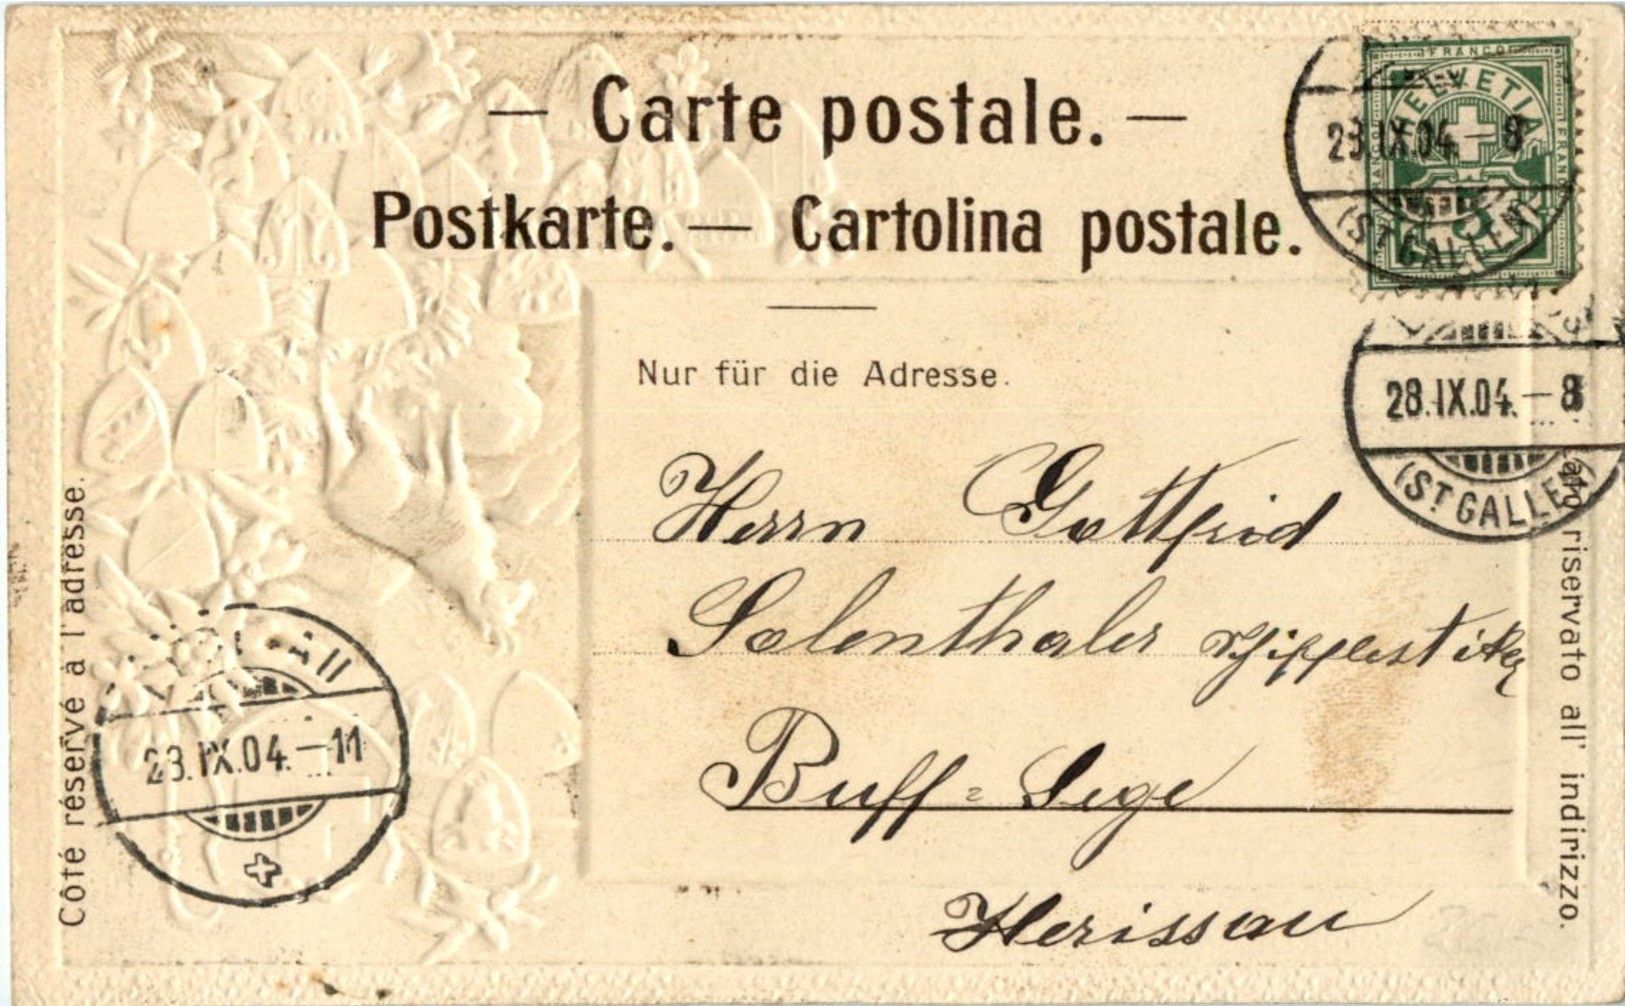 — Carte postale. —
Postkarte. — Cartolina postale.
Nur für die Adresse.
Côté réservé à l'adresse.
Lato riservato all' indirizzo.
FRANCO
HELVETIA
5
28.IX.04.–8
(ST GALLEN)
28.IX.04.–8
(ST GALLEN)
28.IX.04.–11
Herrn Gottfrid
Solenthaler
Buff=Sege
Herissau